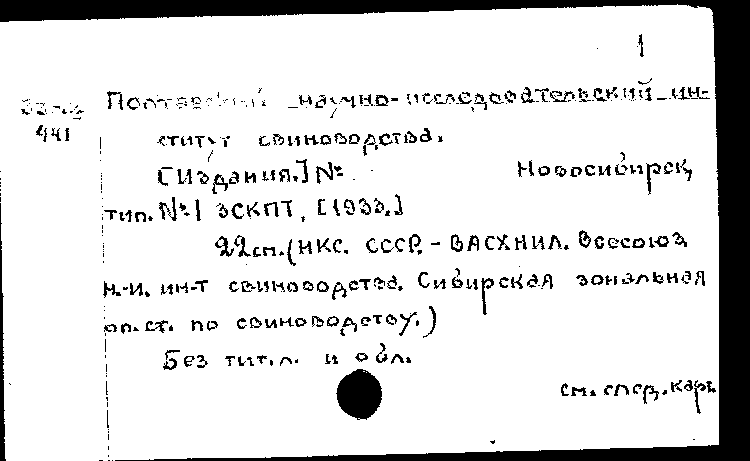 1
Полтавский научно-исследовательский ин-
441 ститут свиноводства.
[Издания.] № Новосибирск,
тип. №1 ЗСКПТ, [1933.]
22 см. (НКС. СССР. - ВАСХНИЛ. Всесоюз.
н.-и. ин-т свиноводства. Сибирская зональная
оп. ст. по свиноводству.)
Без тит. л. и обл.
см. след. карт.